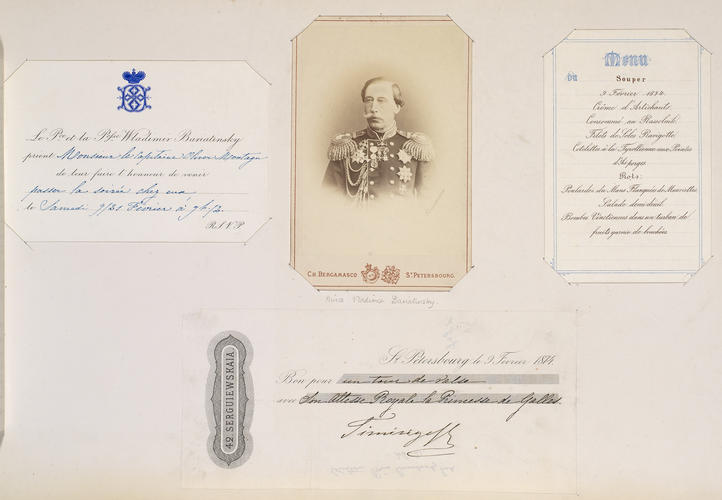 Le Pce et la Psse Wladimir Bariatinsky
prient Monsieur le Capitaine Oliver Montagu
de leur faire l'honneur de venir
passer la soirée chez eux
le Samedi 9/21 Février à 9 h 1/2
R.S.V.P.
CH. BERGAMASCO ST. PETERSBOURG.
Prince Vladimir Bariatinsky.
Menu
du Souper
9 Février 1874.
Crême d'Artichauts
Consommé au Rassolnick
Filets de Soles Ravigotte
Cotelettes à la Tyrollienne aux Pointes
d'Asperges
Rots:
Poulardes du Mans Flanquées de Mauviettes
Salade demi deuil
Bombe Vénitienne dans un turban de
fruits garnie de bouchées
42 SERGUIEWSKAIA
St Pétersbourg le 9 Février 1874
Bon pour un tour de valse
avec Son Altesse Royale la Princesse de Galles.